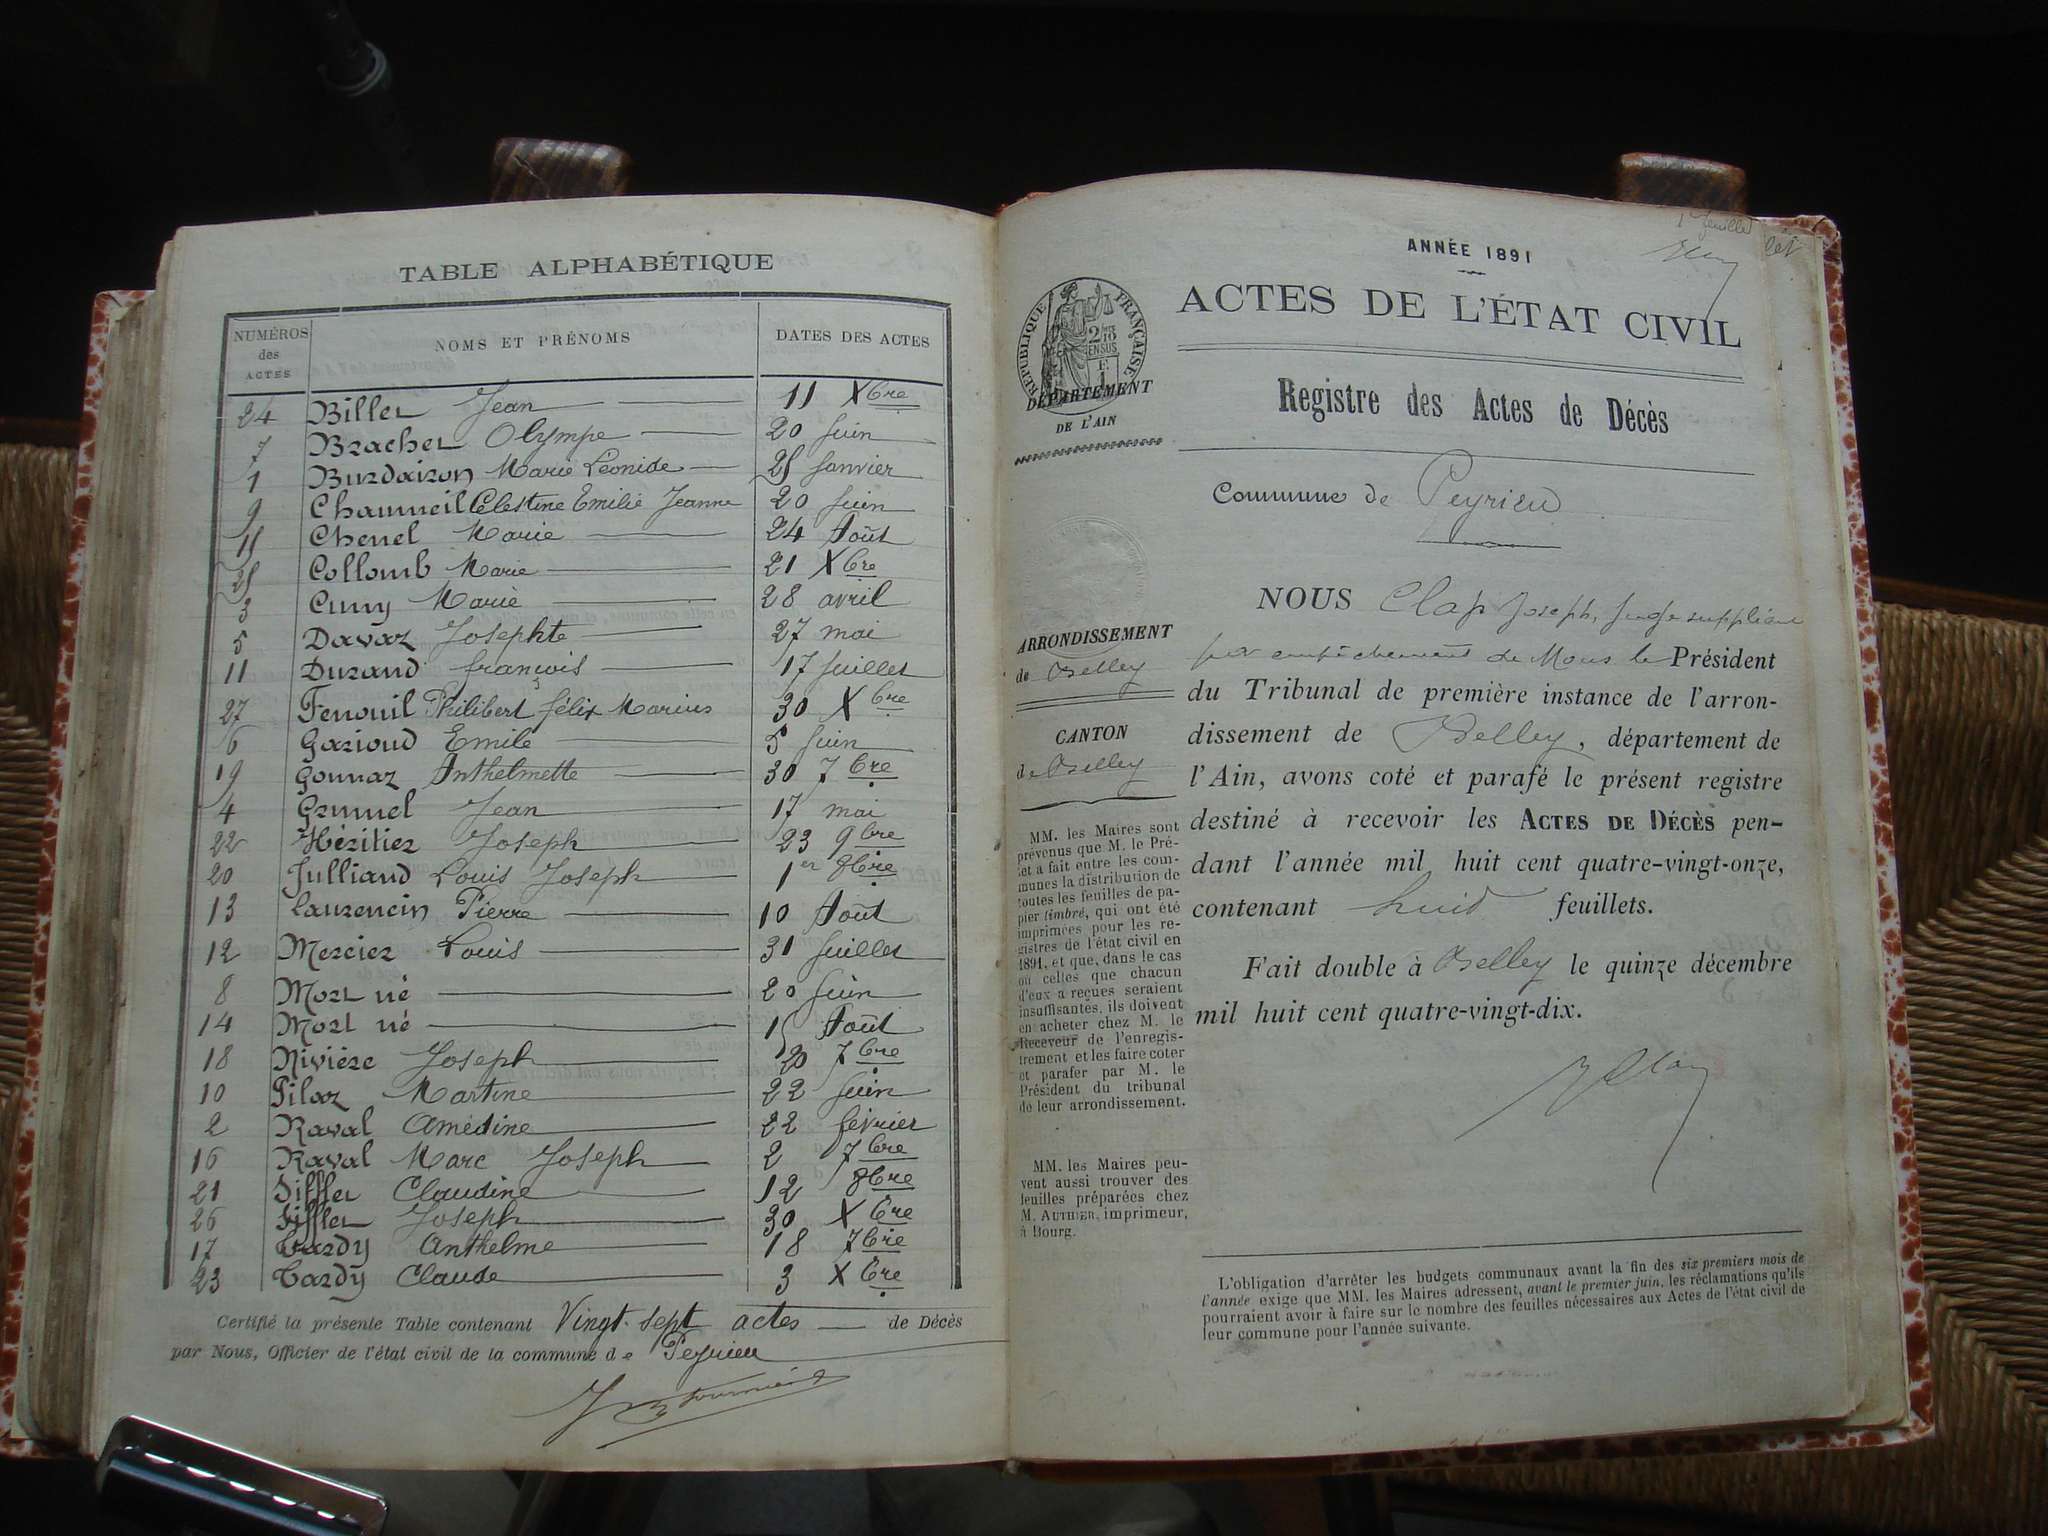 TABLE ALPHABÉTIQUE
NUMÉROS des ACTES NOMS ET PRÉNOMS DATES DES ACTES
24 Billet Jean 11 Xbre
7 Brachet Olympe 20 Juin
1 Burdairon Marie Léonide 25 Janvier
9 Chaumeil Célestine Emilie Jeanne 20 Juin
15 Chenel Marie 24 Août
25 Collomb Marie 21 Xbre
3 Cuny Marie 28 avril
5 Davaz Josephte 27 mai
11 Durand françois 17 Juillet
27 Fenouil Philibert félix Marius 30 Xbre
6 Garioud Emile 5 Juin
19 Gonnaz Anthelmette 30 7bre
4 Grumel Jean 17 mai
22 Héritier Joseph 23 9bre
20 Julliand Louis Joseph 1er 8bre
13 Laurencin Pierre 10 Août
12 Mercier Louis 31 Juillet
8 Mort né 20 Juin
14 Mort né 15 Août
18 Nivière Joseph 20 7bre
10 Pilaz Martine 22 Juin
2 Raval Amédine 22 février
16 Raval Marc Joseph 2 7bre
21 Siffler Claudine 12 8bre
26 Siffler Joseph 30 Xbre
17 Tardy Anthelme 18 7bre
23 Tardy Claude 3 Xbre
Certifié la présente Table contenant Vingt-sept actes de Décès
par Nous, Officier de l'état civil de la commune de Peyrieu
1er feuillet
ANNÉE 1891
ACTES DE L'ÉTAT CIVIL
RÉPUBLIQUE FRANÇAISE
DÉPARTEMENT
DE L'AIN
Registre des Actes de Décès
Commune de Peyrieu
ARRONDISSEMENT
de Belley
CANTON
de Belley
MM. les Maires sont
prévenus que M. le Pré-
fet a fait entre les com-
munes la distribution de
toutes les feuilles de pa-
pier timbré, qui ont été
imprimées pour les re-
gistres de l'état civil en
1891, et que, dans le cas
où celles que chacun
d'eux a reçues seraient
insuffisantes, ils doivent
en acheter chez M. le
Receveur de l'enregis-
trement et les faire coter
et parafer par M. le
Président du tribunal
de leur arrondissement.
MM. les Maires peu-
vent aussi trouver des
feuilles préparées chez
M. AUTHIER, imprimeur,
à Bourg.
NOUS Clap Joseph, Juge suppléant
par empêchement de Mons le Président
du Tribunal de première instance de l'arron-
dissement de Belley, département de
l'Ain, avons coté et parafé le présent registre
destiné à recevoir les ACTES DE DÉCÈS pen-
dant l'année mil huit cent quatre-vingt-onze,
contenant huit feuillets.
Fait double à Belley le quinze décembre
mil huit cent quatre-vingt-dix.
L'obligation d'arrêter les budgets communaux avant la fin des six premiers mois de
l'année exige que MM. les Maires adressent, avant le premier juin, les réclamations qu'ils
pourraient avoir à faire sur le nombre des feuilles nécessaires aux Actes de l'état civil de
leur commune pour l'année suivante.